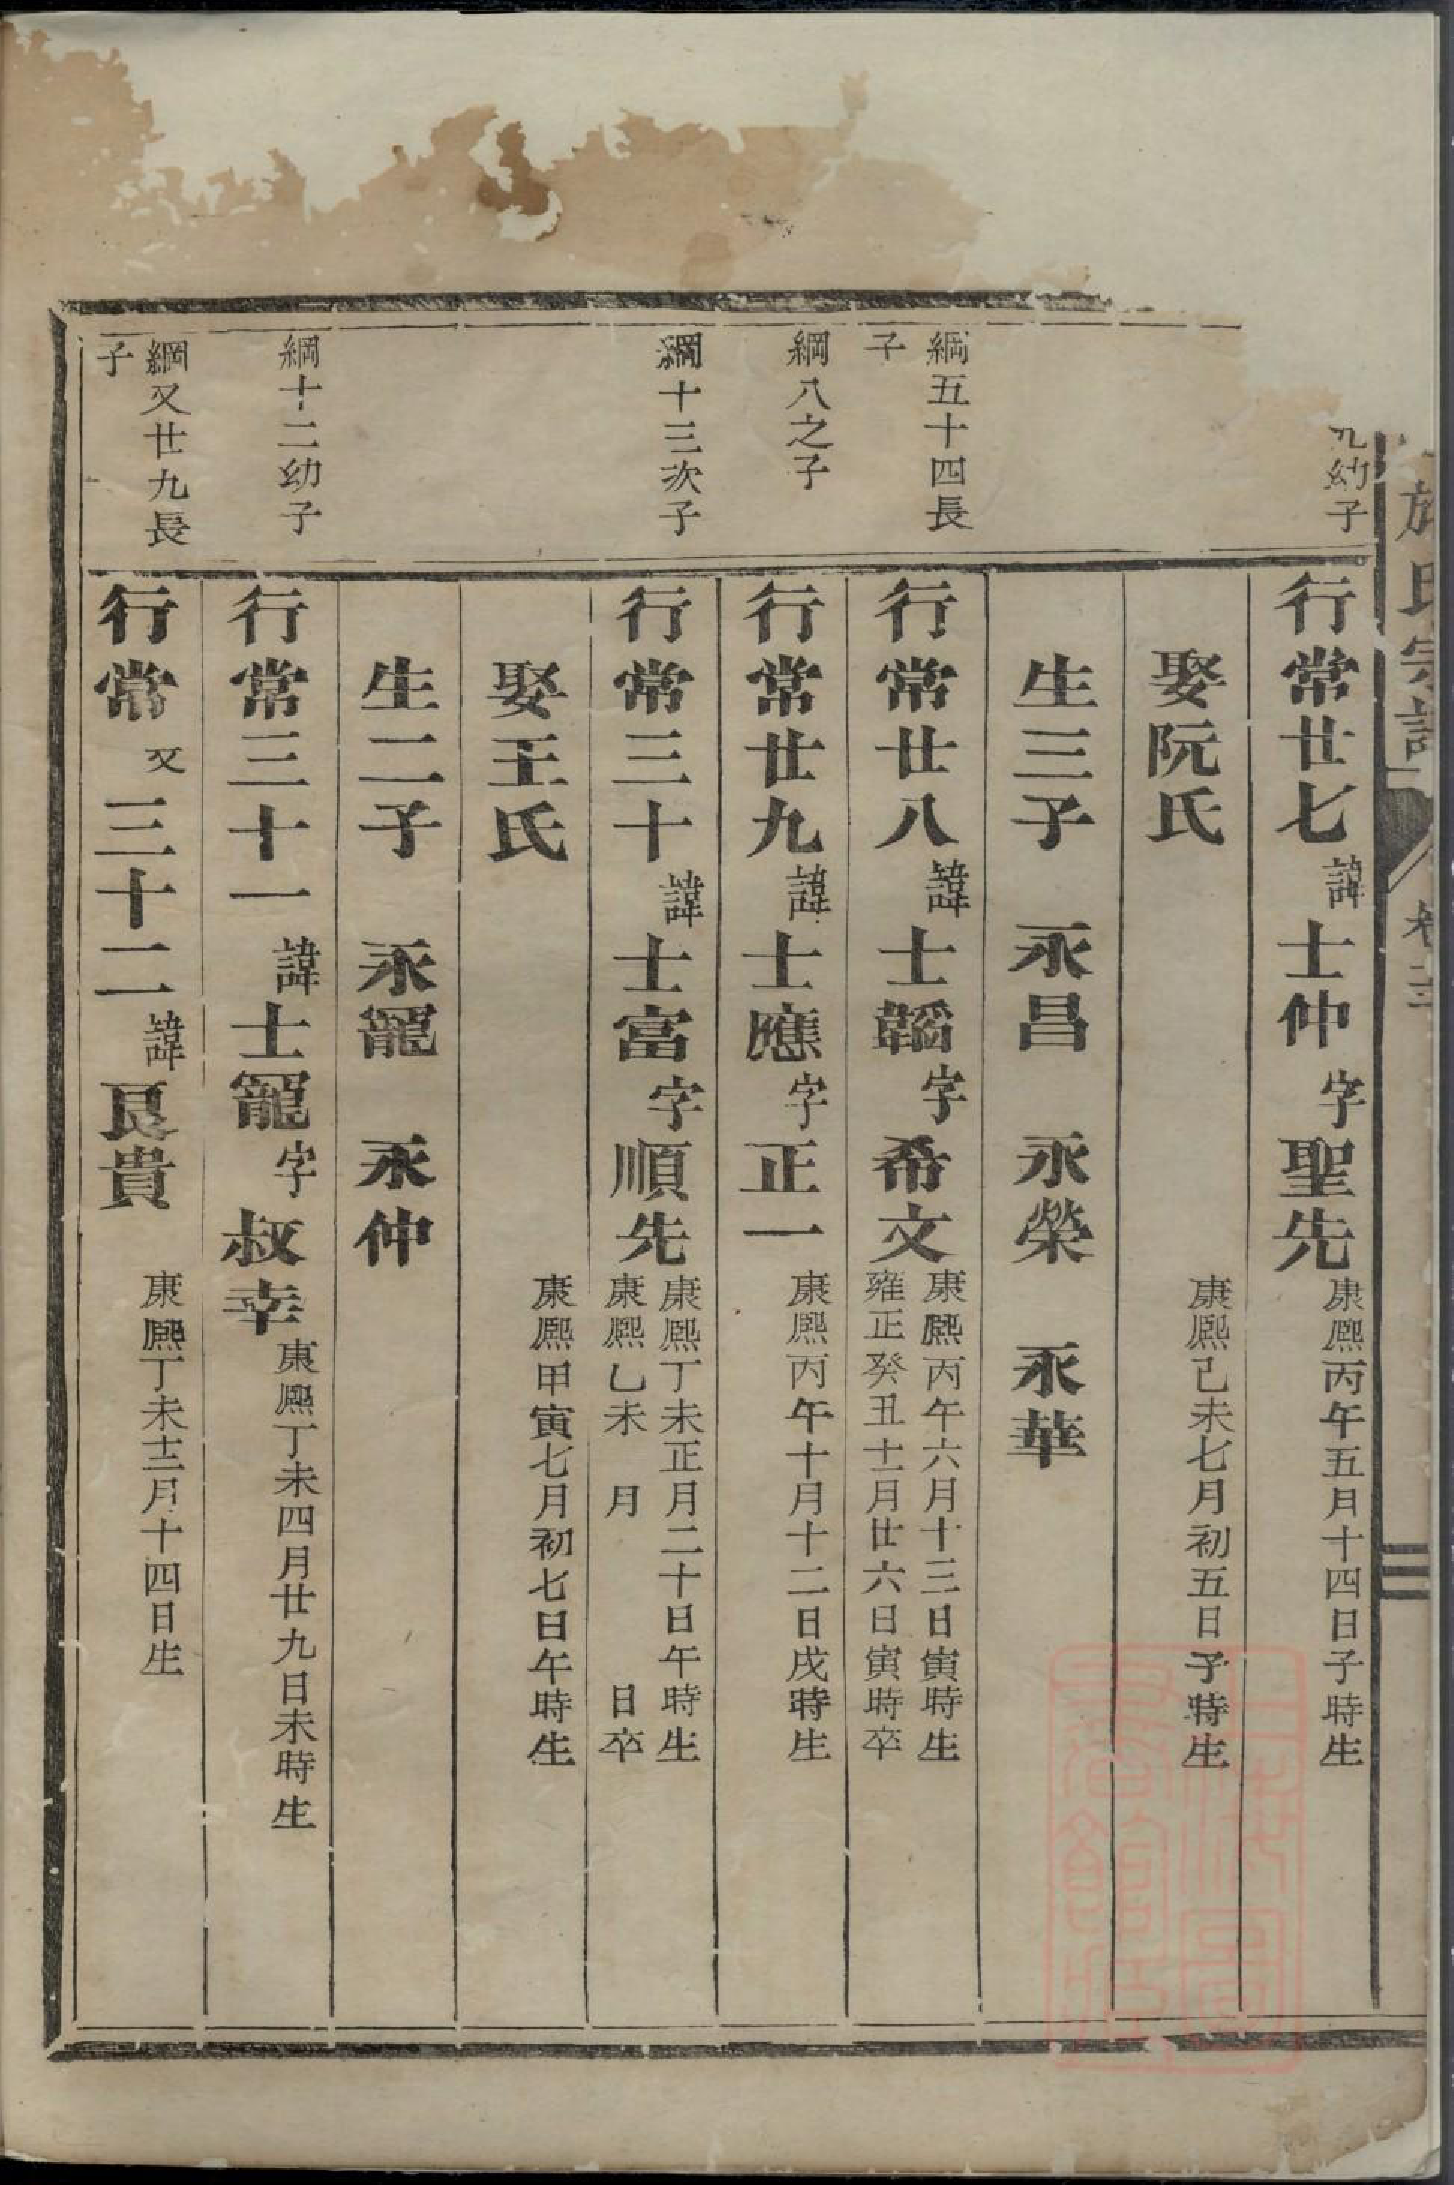 氏宗譜
九幼子
行常廿七 諱士仲 字聖先 康熙丙午五月十四日子時生
娶阮氏 康熙己未七月初五日子時生
生三子 永昌 永榮 永華
綱五十四長子
行常廿八 諱士韜 字希文 康熙丙午六月十三日寅時生
雍正癸丑十二月廿六日寅時卒
綱八之子
行常廿九 諱士應 字正一 康熙丙午十月十二日戌時生
綱十三次子
行常三十 諱士富 字順先 康熙丁未正月二十日午時生
康熙乙未 月 日卒
娶王氏 康熙甲寅七月初七日午時生
生二子 永寵 永仲
綱十二幼子
行常三十一 諱士寵 字叔幸 康熙丁未四月廿九日未時生
綱又廿九長子
行常又三十二 諱良貴 康熙丁未十二月十四日生